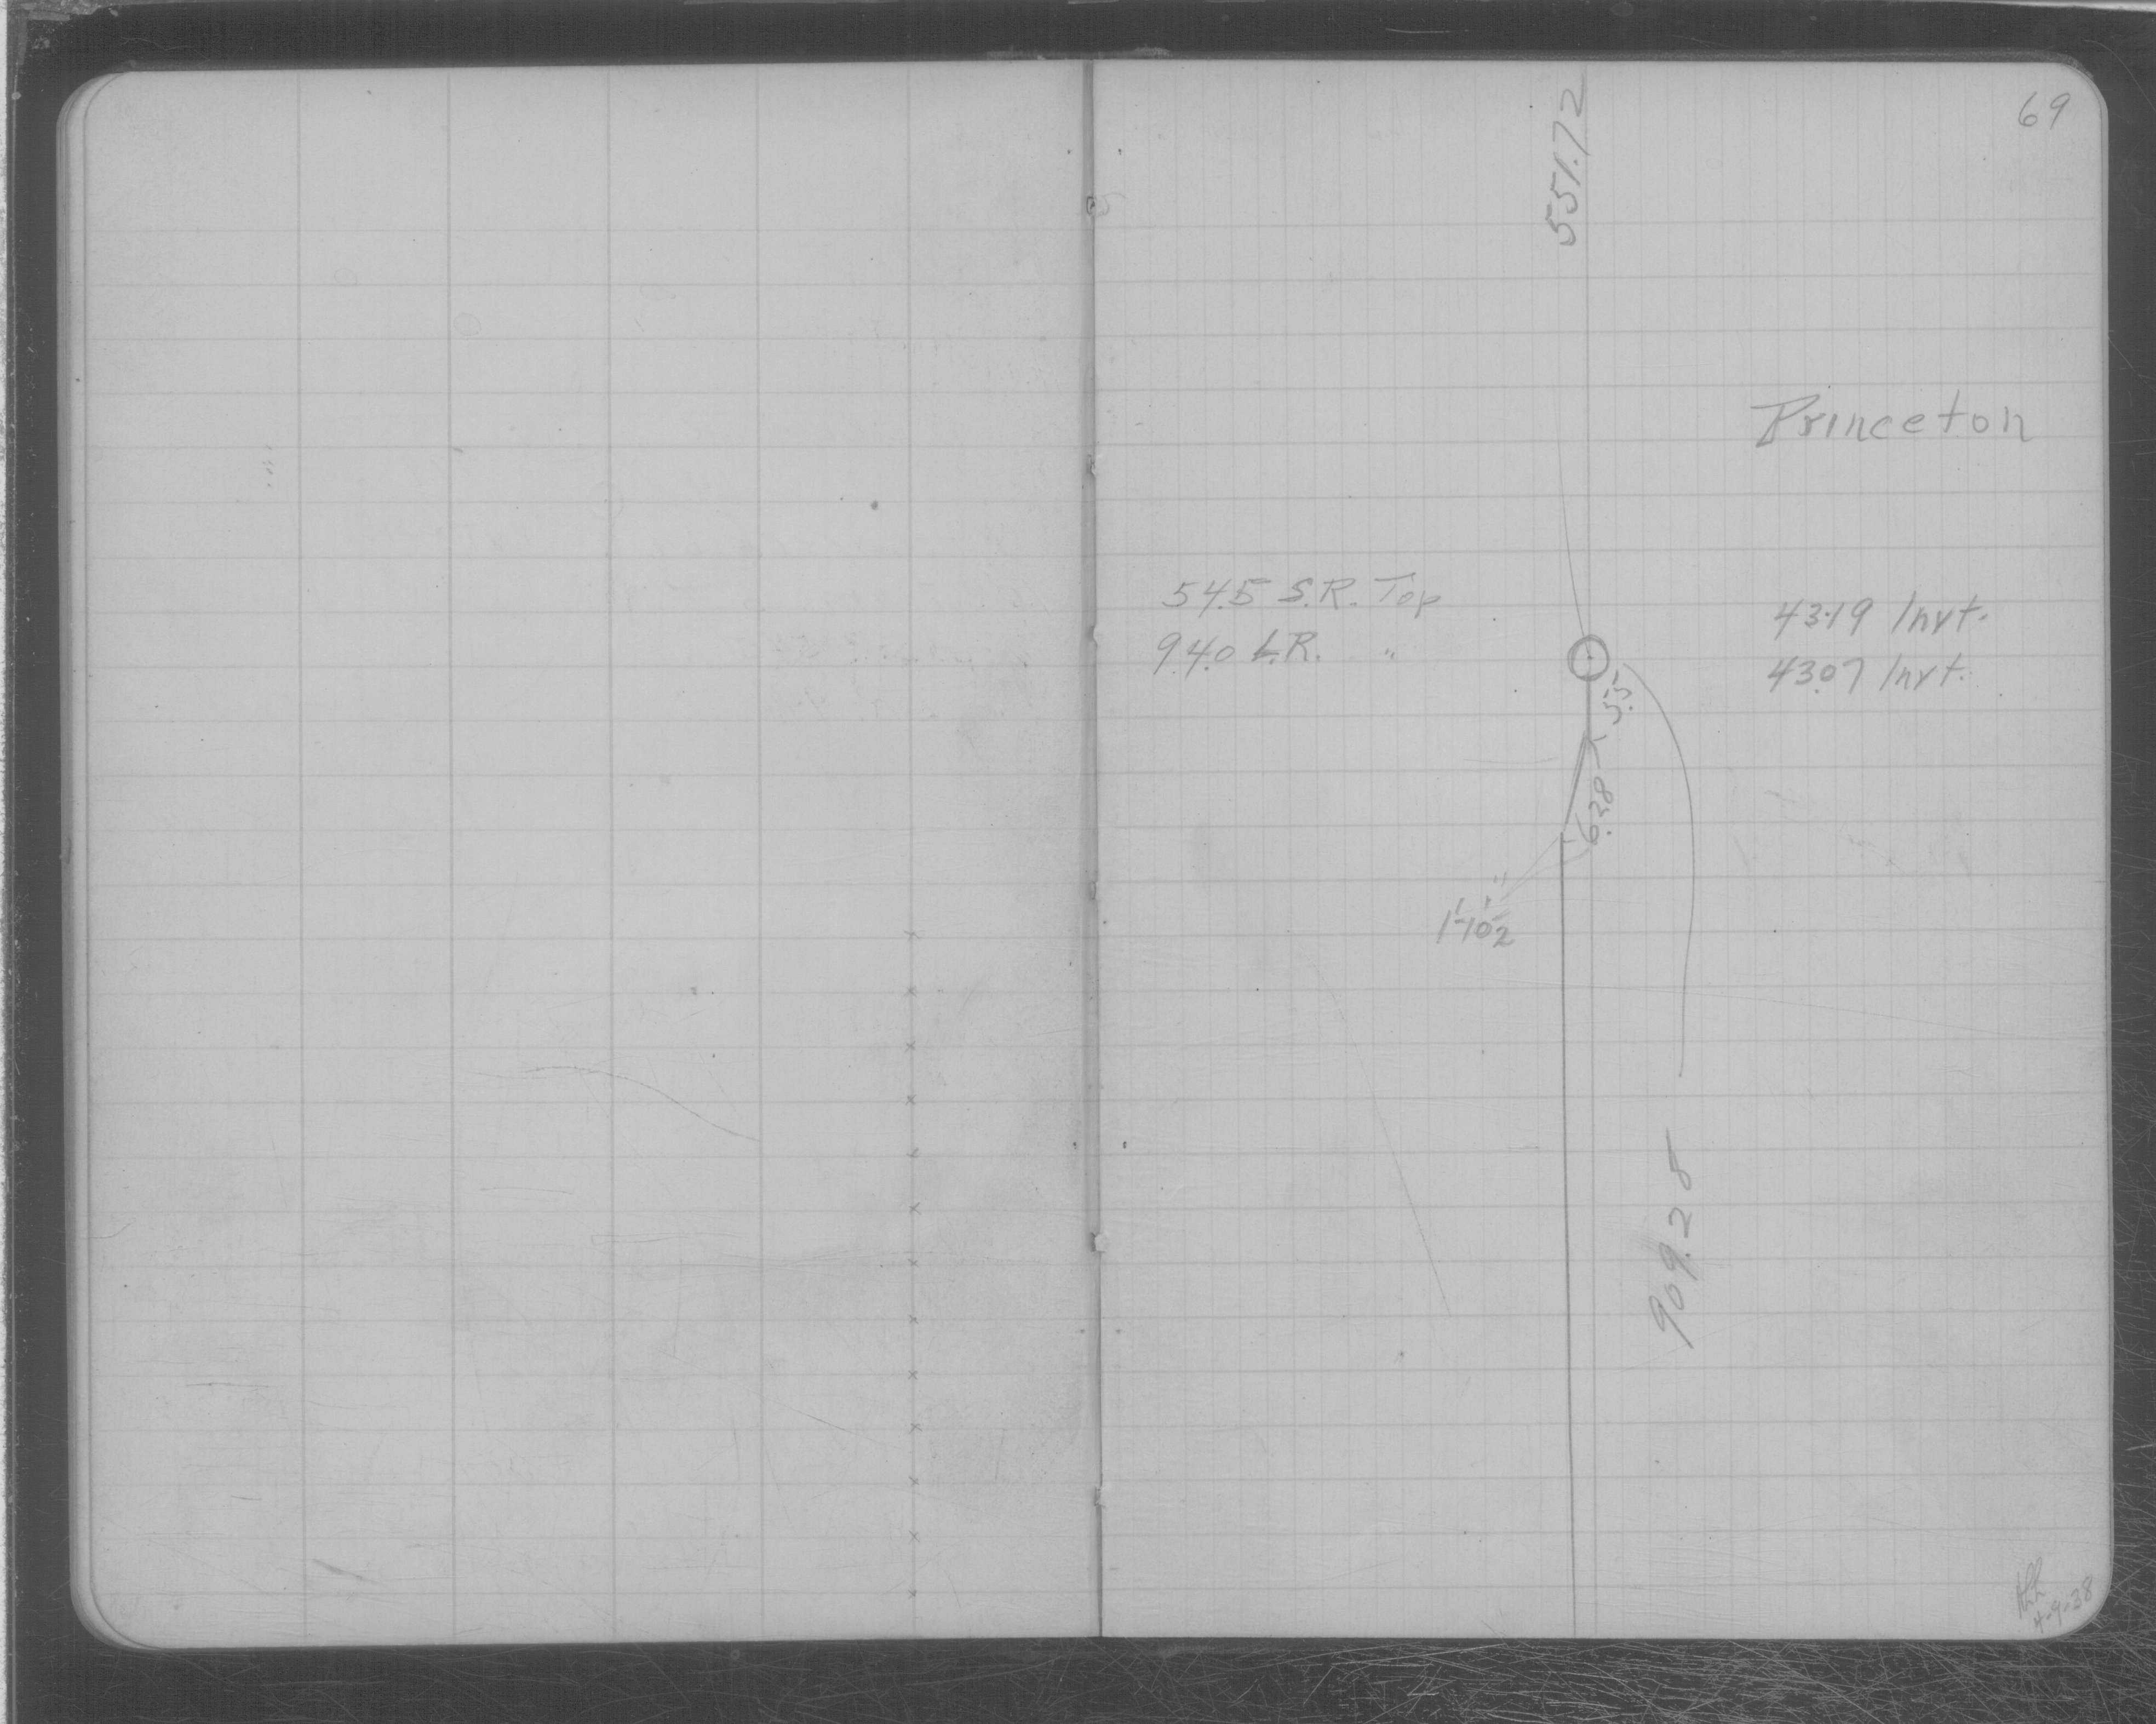 69
551.72
Princeton
54.5 S.R. Top
94.0 L.R. "
43.19 Invt.
43.07 Invt.
5.5
6.28
909.28
4-9-38